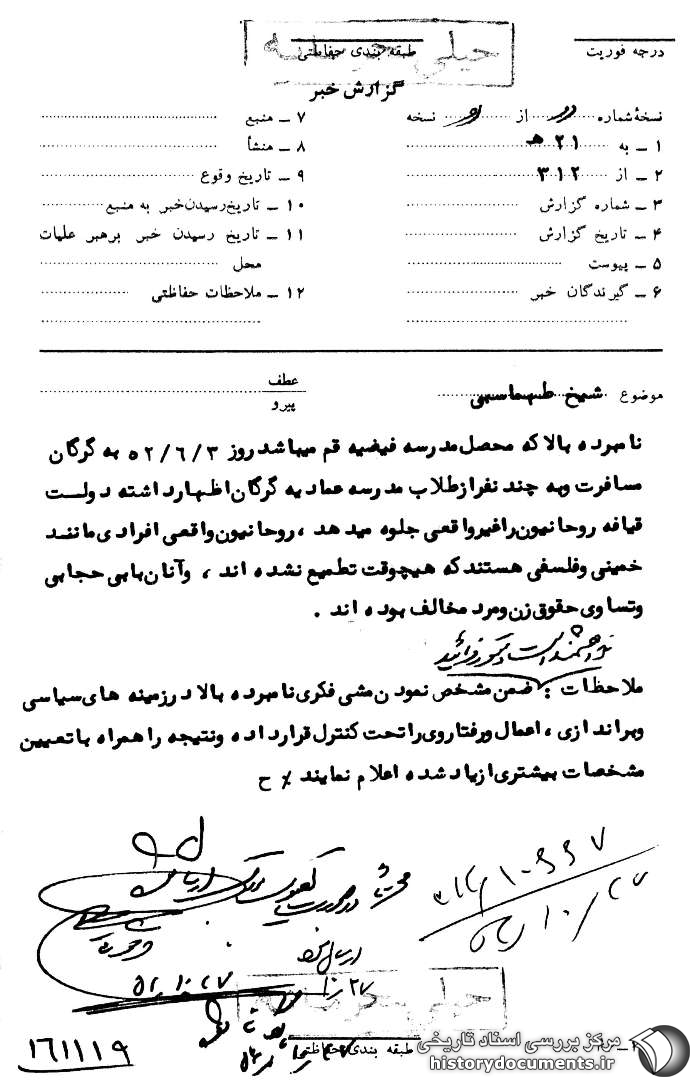 خیلی محرمانه
درجه فوریت
طبقه بندی حفاظتی
گزارش خبر
نسخهٔ شماره از نسخه
۱ ـ به ۲۱ هـ
۲ ـ از ۳۱۲
۳ ـ شماره گزارش
۴ ـ تاریخ گزارش
۵ ـ پیوست
۶ ـ گیرندگان خبر
۷ ـ منبع
۸ ـ منشأ
۹ ـ تاریخ وقوع
۱۰ ـ تاریخ رسیدن خبر به منبع
۱۱ ـ تاریخ رسیدن خبر برهبر عملیات
محل
۱۲ ـ ملاحظات حفاظتی
موضوع شیخ طهماسبی
عطف
پیرو
نامبرده بالا که محصل مدرسه فیضیه قم میباشد روز ۵۲/۶/۳ به گرگان
مسافرت وبه چند نفر از طلاب مدرسه عمادیه گرگان اظهار داشته دولت
قیافه روحانیون را غیر واقعی جلوه میدهد ، روحانیون واقعی افرادی مانند
خمینی وفلسفی هستند که هیچوقت تطمیع نشده اند ، وآنان با بی حجابی
وتساوی حقوق زن ومرد مخالف بوده اند .
خواهشمند است دستور فرمائید
ملاحظات : ضمن مشخص نمودن مشی فکری نامبرده بالا در زمینه های سیاسی
وبراندازی ، اعمال ورفتار وی را تحت کنترل قرار داده ونتیجه را همراه با تعیین
مشخصات بیشتری از یاد شده اعلام نمایند ٪ ح
ارسال
۵۲/۱۰/۲۷
۲۷/۱۰
خیلی محرمانه
طبقه بندی حفاظتی
۱۶۱۱۱۹
مرکز بررسی اسناد تاریخی
historydocuments.ir